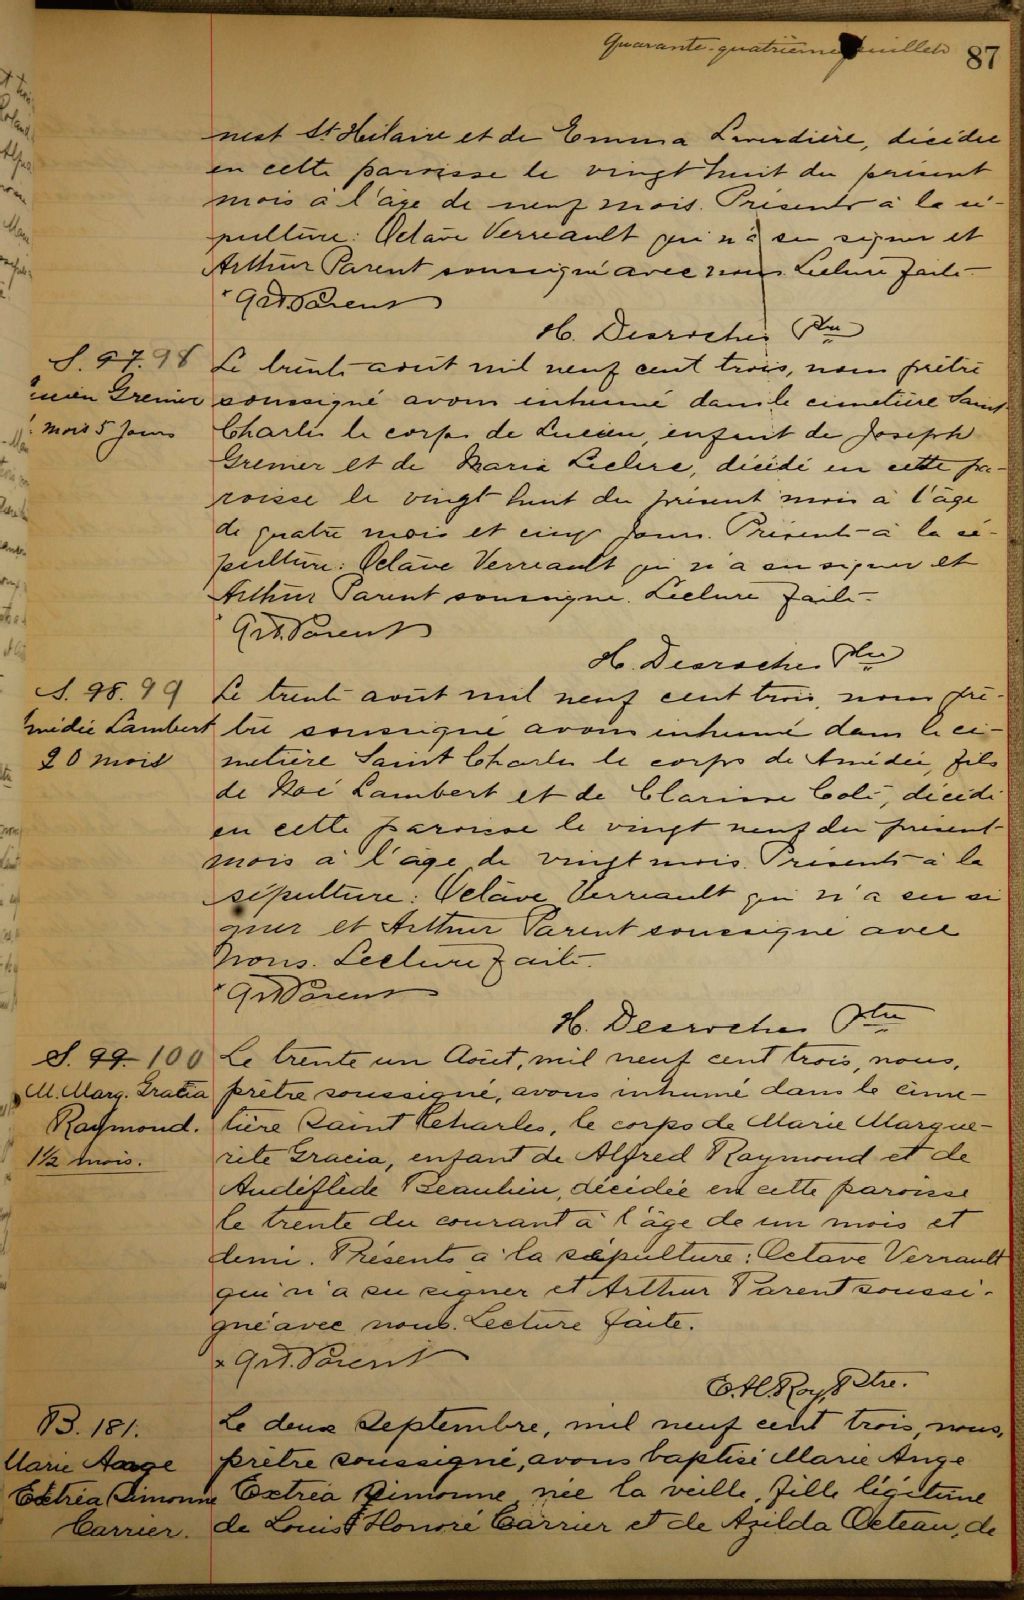 Quarante-quatrième feuillet
87
nest St. Hilaire et de Emma Laverdière, décédée
en cette paroisse le vingt huit du présent
mois à l'âge de neuf mois. Présents à la sé-
pulture: Octave Verreault qui n'a su signer et
Arthur Parent soussigné avec nous. Lecture faite
x Art. Parent
H. Desrochers Ptre
S. 97. 98
Lucien Grenier
mois 5 jours
Le trente août mil neuf cent trois, nous prêtre
soussigné avons inhumé dans le cimetière Saint-
Charles le corps de Lucien, enfant de Joseph
Grenier et de Maria Leclerc, décédé en cette pa-
roisse le vingt huit du présent mois à l'âge
de quatre mois et cinq jours. Présents à la sé-
pulture: Octave Verreault qui n'a su signer et
Arthur Parent soussigné. Lecture faite.
x Art. Parent
H. Desrochers Ptre
S. 98. 99
médée Lambert
20 mois
Le trente août mil neuf cent trois, nous prê-
tre soussigné avons inhumé dans le ci-
metière Saint Charles le corps de Amédée, fils
de Noé Lambert et de Clarisse Coté, décédé
en cette paroisse le vingt neuf du présent
mois à l'âge de vingt mois. Présents à la
sépulture: Octave Verreault qui n'a su si
gner et Arthur Parent soussigné avec
nous. Lecture faite.
x Art Parent
H. Desrochers Ptre
S. 99. 100
M. Marg. Gratia
Raymond.
1½ mois.
Le trente un Août, mil neuf cent trois, nous,
prêtre soussigné, avons inhumé dans le cime-
tière Saint Charles, le corps de Marie Margue-
rite Gracia, enfant de Alfred Raymond et de
Audéflède Beaulieu, décédée en cette paroisse
le trente du courant à l'âge de un mois et
demi. Présents à la sépulture: Octave Verrault
qui n'a su signer et Arthur Parent soussi-
gné avec nous. Lecture faite.
x Art. Parent
E. H. Roy, Ptre.
B. 181.
Marie Ange
Extréa Simonne
Carrier.
Le deux Septembre, mil neuf cent trois, nous,
prêtre soussigné, avons baptisé Marie Ange
Extréa Simonne, née la veille, fille légitime
de Louis Honoré Carrier et de Azilda Octeau, de